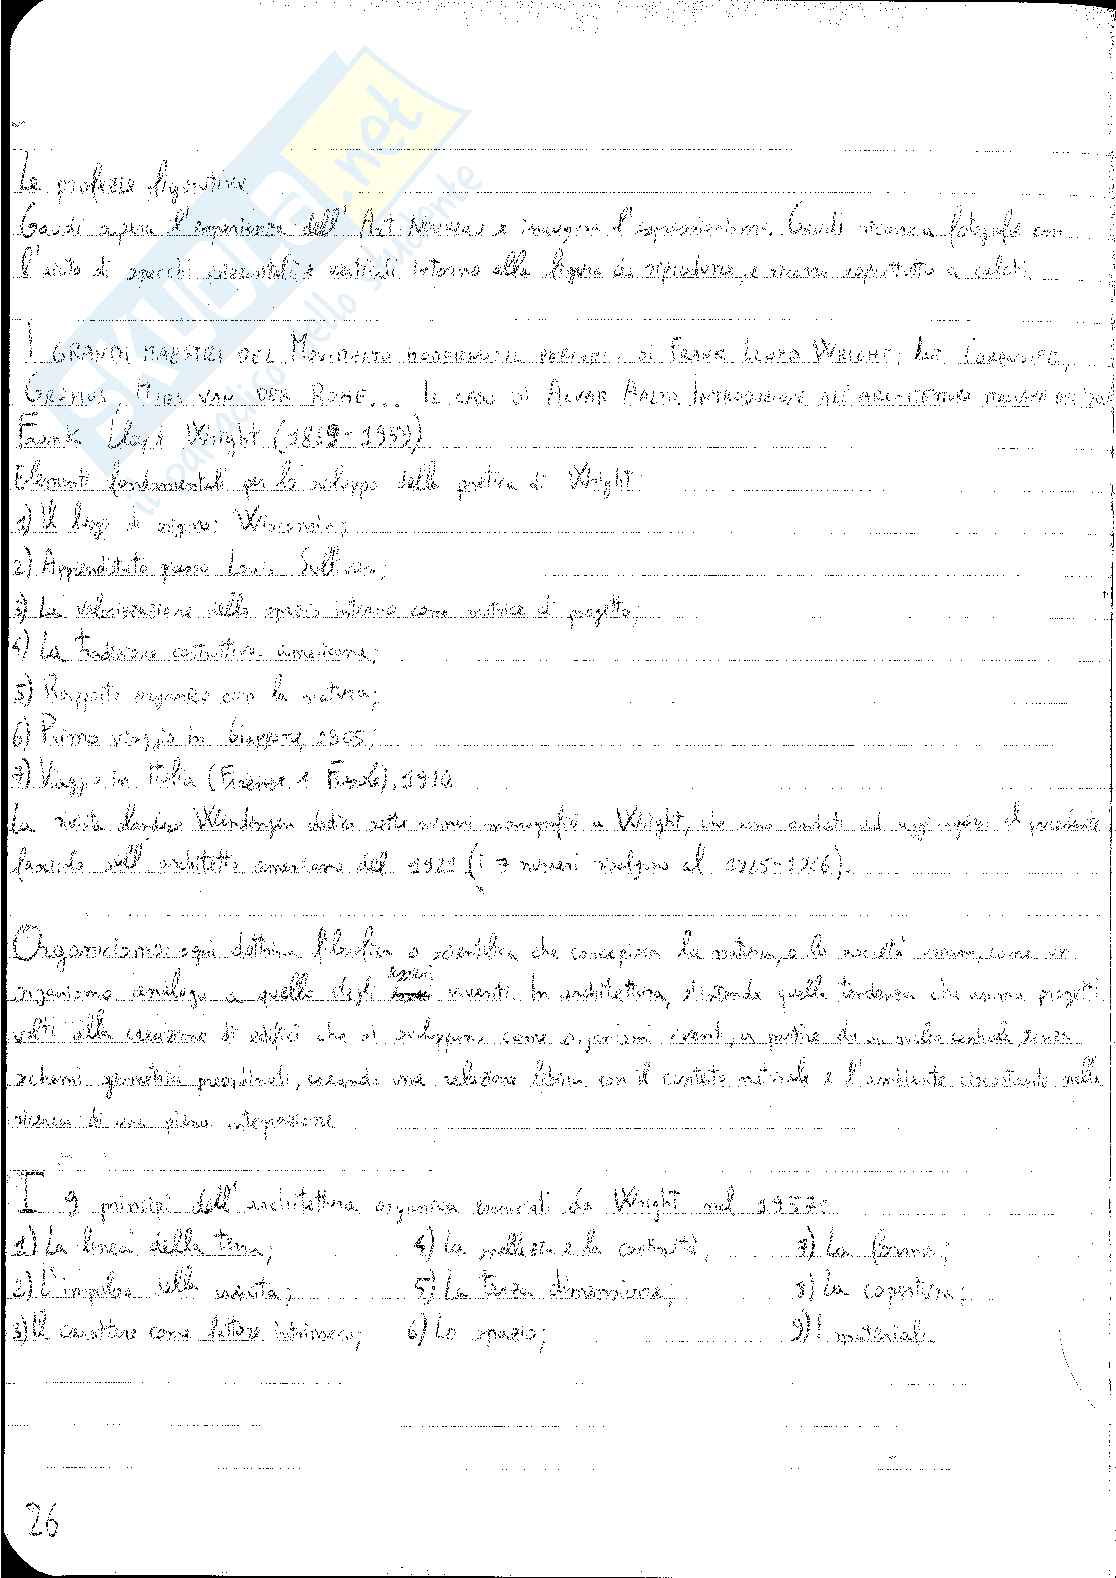 La profezia figurativa
Gaudì supera l'esperienza dell'Art Nouveau e inaugura l'espressionismo. Gaudì veniva fotografato con
l'aiuto di specchi orizzontali e verticali intorno alla figura da riprodurre, e veniva soprattutto a calchi.
I GRANDI MAESTRI DEL MOVIMENTO MODERNO: DI FRANK LLOYD WRIGHT, LE CORBUSIER,
GROPIUS, MIES VAN DER ROHE... IL CASO DI ALVAR AALTO. INTRODUZIONE ALL'ARCHITETTURA
Frank Lloyd Wright (1869-1959)
Elementi fondamentali per lo sviluppo della poetica di Wright:
1) Il luogo di origine: Wisconsin;
2) Apprendistato presso Louis Sullivan;
3) La valorizzazione dello spazio interno come matrice di progetto;
4) La tradizione costruttiva americana;
5) Rapporto organico con la natura;
6) Primo viaggio in Giappone, 1905;
7) Viaggio in Italia (Firenze e Fiesole), 1910.
La rivista olandese Wendingen dedica sette numeri monografici a Wright, che sono andati ad aggiungersi al precedente
fascicolo sull'architetto americano del 1921 (i 7 numeri risalgono al 1925-1926).
Organicismo: ogni dottrina filosofica o scientifica che concepisca la natura, o la società umana, come un
organismo analogo a quello degli esseri viventi. In architettura, s'intende quella tendenza che anima progetti
volti alla creazione di edifici che si sviluppano come organismi viventi, a partire da un nucleo centrale, senza
schemi geometrici preordinati, cercando una relazione libera con il contesto naturale e l'ambiente circostante nella
ricerca di una piena integrazione
I 9 principi dell'architettura organica enunciati da Wright nel 1957:
1) La linea della terra; 4) La e la continuità; 7) La forma;
2) L'impulso della crescita; 5) La terza dimensione; 8) La copertura;
3) Il carattere come fattore intrinseco; 6) Lo spazio; 9) I materiali
26
skuola.net